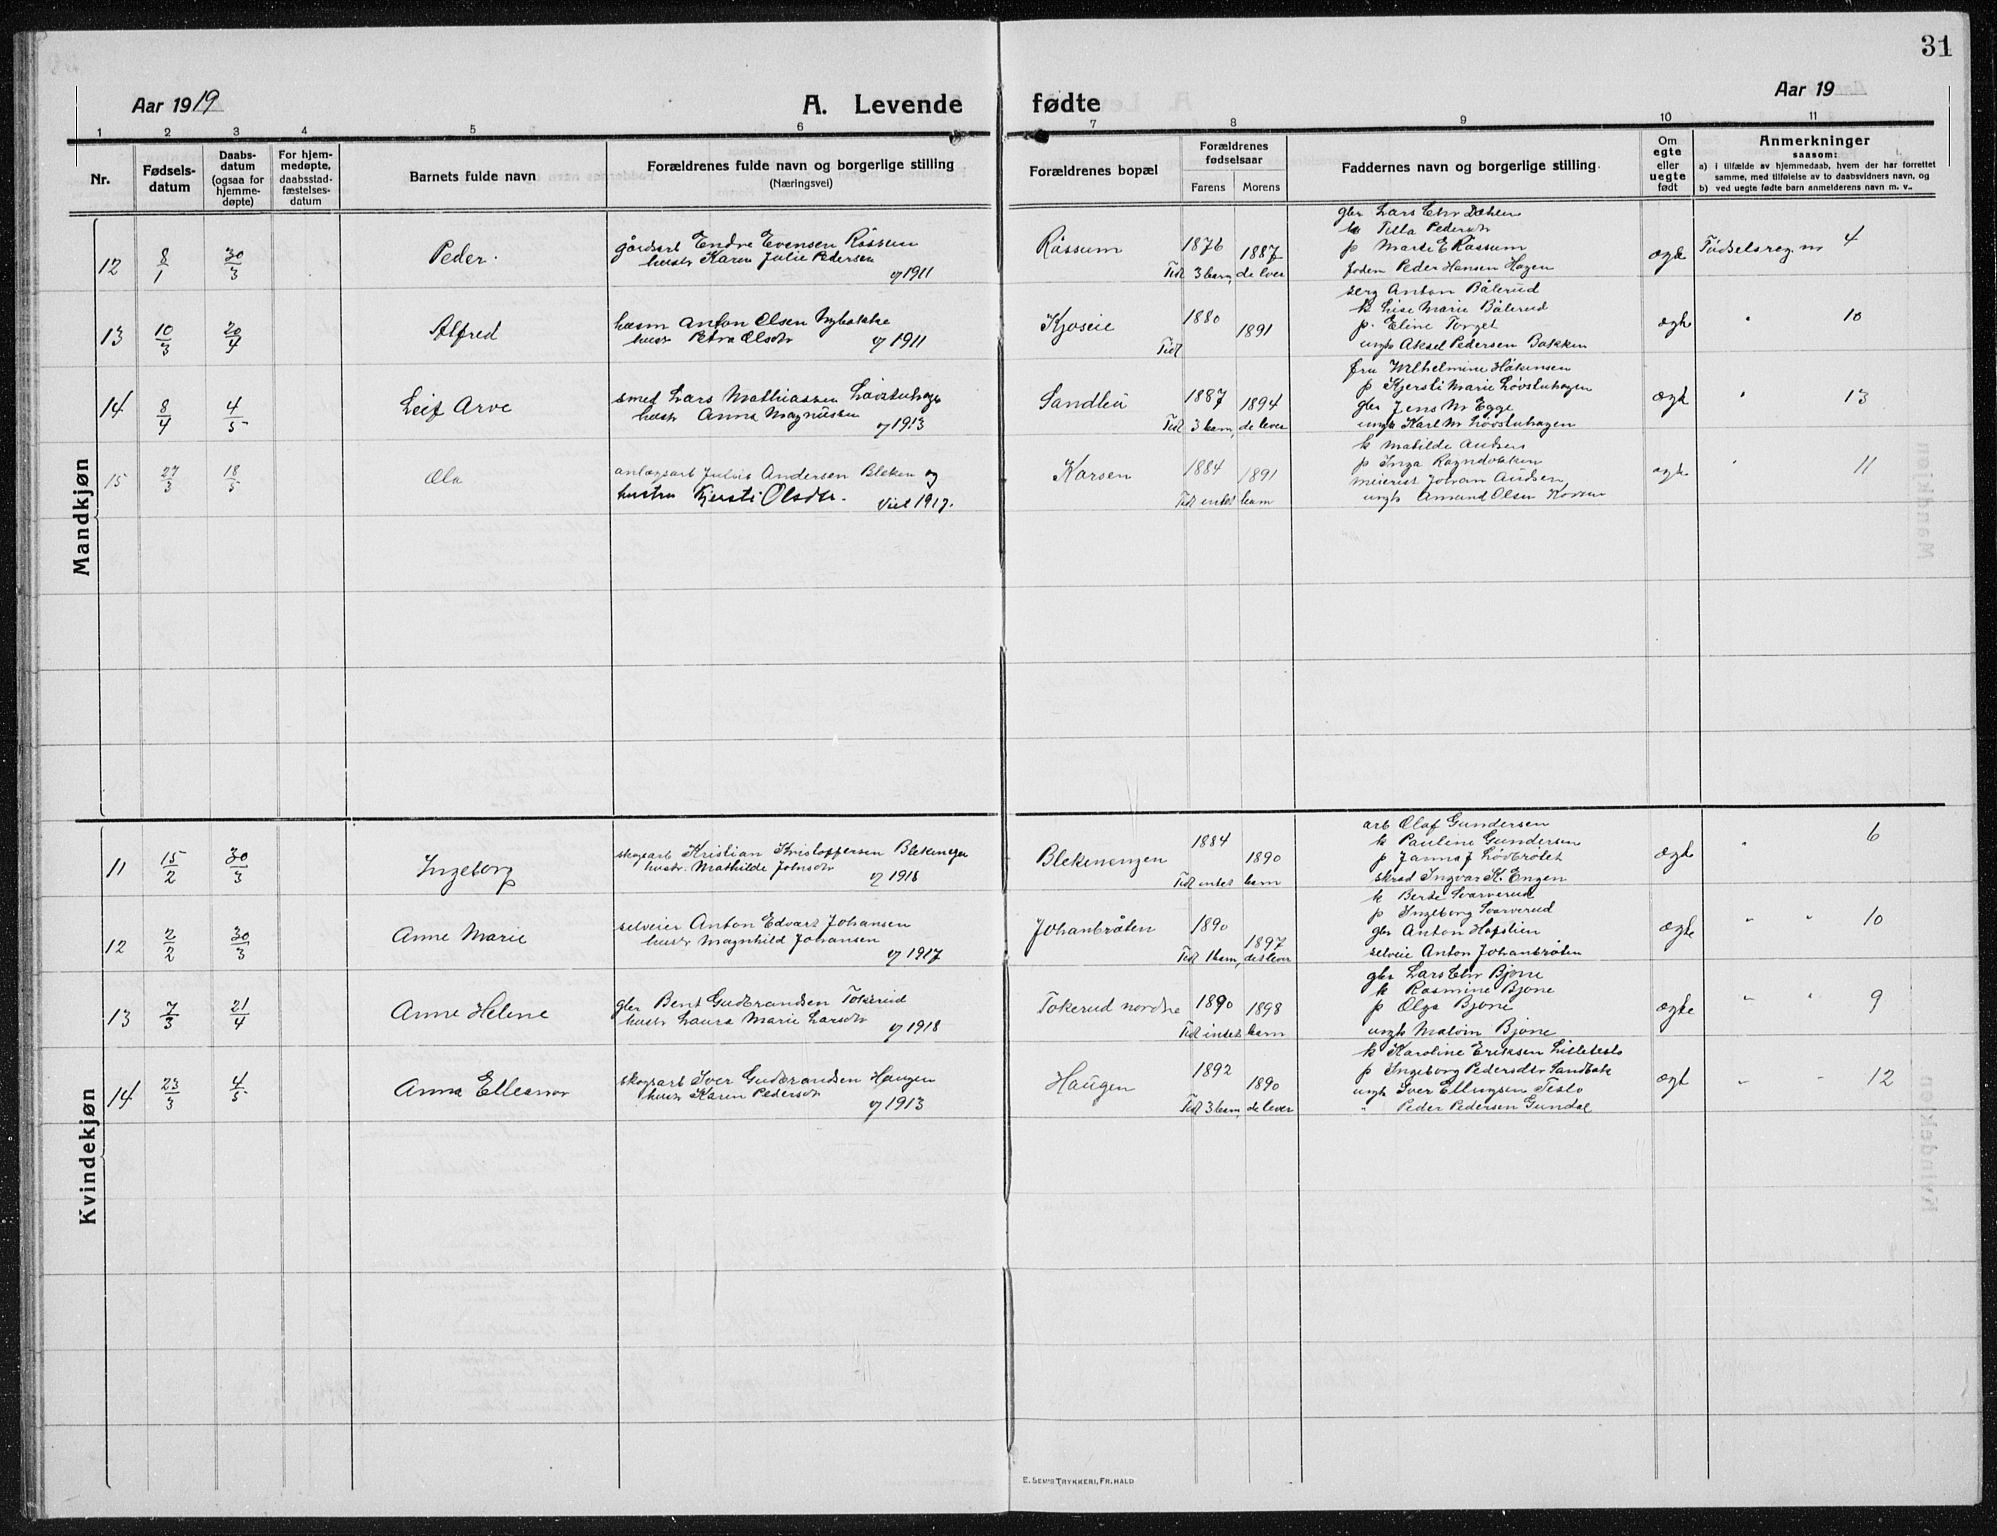 31
Aar 1919
A. Levende fødte
Aar 19
1 2 3 4 5 6 7 8 9 10 11
Nr.
Fødsels-
datum
Daabs-
datum
(ogsaa for
hjemme-
døpte)
For hjem-
medøpte,
daabsstad-
fæstelses-
datum
Barnets fulde navn
Forældrenes fulde navn og borgerlige stilling
(Næringsvei)
Forældrenes bopæl
Forældrenes
fødselsaar
Farens Morens
Faddernes navn og borgerlige stilling
Om
egte
eller
uegte
født
Anmerkninger
saasom:
a) i tilfælde av hjemmedaab, hvem der har forrettet
samme, med tilføielse av to daabsvidners navn, og
b) ved uegte fødte barn anmelderens navn m. v.
Mandkjøn
12 8/1 30/3 Peder.
gårdsarb Endre Evensen Røssum
hustr Karen Julie Pedersen
g 1911
Røssum 1876 1887
Tidl 3 barn, de lever
gbr Lars Chr Dæhlen
k Tilla Pedersdr
p Marte E Røssum
foden Peder Hansen Hagen
egte Fødselsreg. nr 4
13 10/3 20/4 Alfred
husm Anton Olsen Nybakke
hustr Petra Olsdr g 1911
Kjoseie 1880 1891
Tidl
serg Anton Bålerud
k Lise Marie Bålerud
p. Eline Torget
ungk Aksel Pedersen Bakken
egte " 10
14 8/4 4/5 Leif Arve
smed Lars Mathiassen Løvstuhagen
hustr Anna Magnussen
g 1913
Sandlia 1887 1894
Tidl 3 barn, de lever
fru Wilhelmine Håkensen
p Kjersti Marie Løvstuhagen
gbr Jens M Egge
ungk Karl M Løvstuhagen
egte " 13
15 27/3 18/5 Ola
anlægsarb Julius Andersen Bleken og
hustru Kjersti Olsdtr. Viet 1917.
Korsen 1884 1891
Tidl intet barn
k Matilde Audsen
p Inga Rogndokken
meierist Johan Audsen,
ungk Amund Olsen Korsen
egte " 11
Kvindekjøn
11 15/2 30/3 Ingeborg
skogsarb Kristian Kristoffersen Blekeneng
hustr. Mathilde Johnsdr g 1918
Blekenengen 1884 1890
Tidl intet barn
arb Olaf Gundersen
k Pauline Gundersen
p Janna J Lødbrøtet
skræd Ingvar K. Engen
egte " 6
12 2/2 30/3 Anne Marie
selveier Anton Edvart Johansen
hustr Magnhild Johansen
g 1917
Johanbråten 1890 1897
Tidl 1 barn, det lever
k Berte Svarverud
p Ingeborg Svarverud
gbr Anton Hofslien
selveie Anton Johanbråten
egte " " 10
13 7/3 21/4 Anne Helene
gbr Bent Gudbrandsen Tokerud
hustr Laura Marie Larsdr g 1918
Tokerud nordre 1890 1898
Tidl intet barn
gbr Lars Chr Bjone
k Rasmine Bjone
p Olga Bjone
ungk Malvin Bjone
egte " " 9
14 23/3 4/5 Anna Elleanor
skogsarb Iver Gudbrandsen Haugen
hustr Karen Pedersdr
g 1913
Haugen 1892 1890
Tidl 3 barn, de lever
k Karoline Eriksen Lilleteslo
p Ingeborg Pedersdtr Sandbak
ungk Iver Ellingsen Teslo
" Peder Pedersen Gundal
egt " " 12
E. SEM'S TRYKKERI, FR.HALD